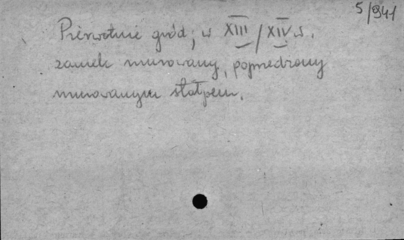 5/941
Pierwotnie gród; w XIII/XIV w.
zamek murowany, poprzedzony
murowanym stołpem.